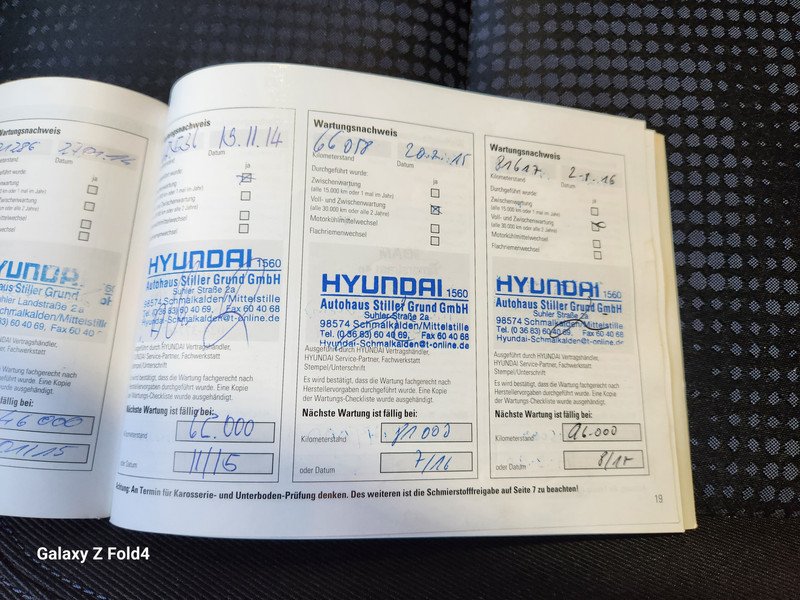 Wartungsnachweis
27.01.14
Datum
YUNDA
Autohaus Stiller Grund
Suhler Landstraße 2a
46 000
01/15
Wartungsnachweis
19.11.14
Kilometerstand Datum
Durchgeführt wurde: ja
Zwischenwartung
Voll- und Zwischenwartung
Motorkühlmittelwechsel
Flachriemenwechsel
HYUNDAI 1560
Autohaus Stiller Grund GmbH
Suhler Straße 2a
98574 Schmalkalden/Mittelstille
Tel. (0 36 83) 60 40 69, Fax 60 40 68
Hyundai-Schmalkalden@t-online.de
Ausgeführt durch HYUNDAI Vertragshändler,
HYUNDAI Service-Partner, Fachwerkstatt
Stempel/Unterschrift
Es wird bestätigt, dass die Wartung fachgerecht nach
Herstellervorgaben durchgeführt wurde. Eine Kopie
der Wartungs-Checkliste wurde ausgehändigt.
Nächste Wartung ist fällig bei:
Kilometerstand 66.000
oder Datum 11/15
Wartungsnachweis
66 058
Kilometerstand Datum
Durchgeführt wurde: ja
Zwischenwartung
(alle 15.000 km oder 1 mal im Jahr)
Voll- und Zwischenwartung
(alle 30.000 km oder alle 2 Jahre)
Motorkühlmittelwechsel
Flachriemenwechsel
HYUNDAI 1560
Autohaus Stiller Grund GmbH
Suhler Straße 2a
98574 Schmalkalden/Mittelstille
Tel. (0 36 83) 60 40 69, Fax 60 40 68
Hyundai-Schmalkalden@t-online.de
Ausgeführt durch HYUNDAI Vertragshändler,
HYUNDAI Service-Partner, Fachwerkstatt
Stempel/Unterschrift
Es wird bestätigt, dass die Wartung fachgerecht nach
Herstellervorgaben durchgeführt wurde. Eine Kopie
der Wartungs-Checkliste wurde ausgehändigt.
Nächste Wartung ist fällig bei:
Kilometerstand 81 000
oder Datum 7/16
Wartungsnachweis
81617
Kilometerstand Datum
Durchgeführt wurde: ja
Zwischenwartung
(alle 15.000 km oder 1 mal im Jahr)
Voll- und Zwischenwartung
(alle 30.000 km oder alle 2 Jahre)
Motorkühlmittelwechsel
Flachriemenwechsel
HYUNDAI 1560
Autohaus Stiller Grund GmbH
Suhler Straße 2a
98574 Schmalkalden/Mittelstille
Tel. (0 36 83) 60 40 69, Fax 60 40 68
Hyundai-Schmalkalden@t-online.de
Ausgeführt durch HYUNDAI Vertragshändler,
HYUNDAI Service-Partner, Fachwerkstatt
Stempel/Unterschrift
Es wird bestätigt, dass die Wartung fachgerecht nach
Herstellervorgaben durchgeführt wurde. Eine Kopie
der Wartungs-Checkliste wurde ausgehändigt.
Nächste Wartung ist fällig bei:
Kilometerstand 96.000
oder Datum 8/17
Achtung: An Termin für Karosserie- und Unterboden-Prüfung denken. Des weiteren ist die Schmierstofffreigabe auf Seite 7 zu beachten!
19
Galaxy Z Fold4